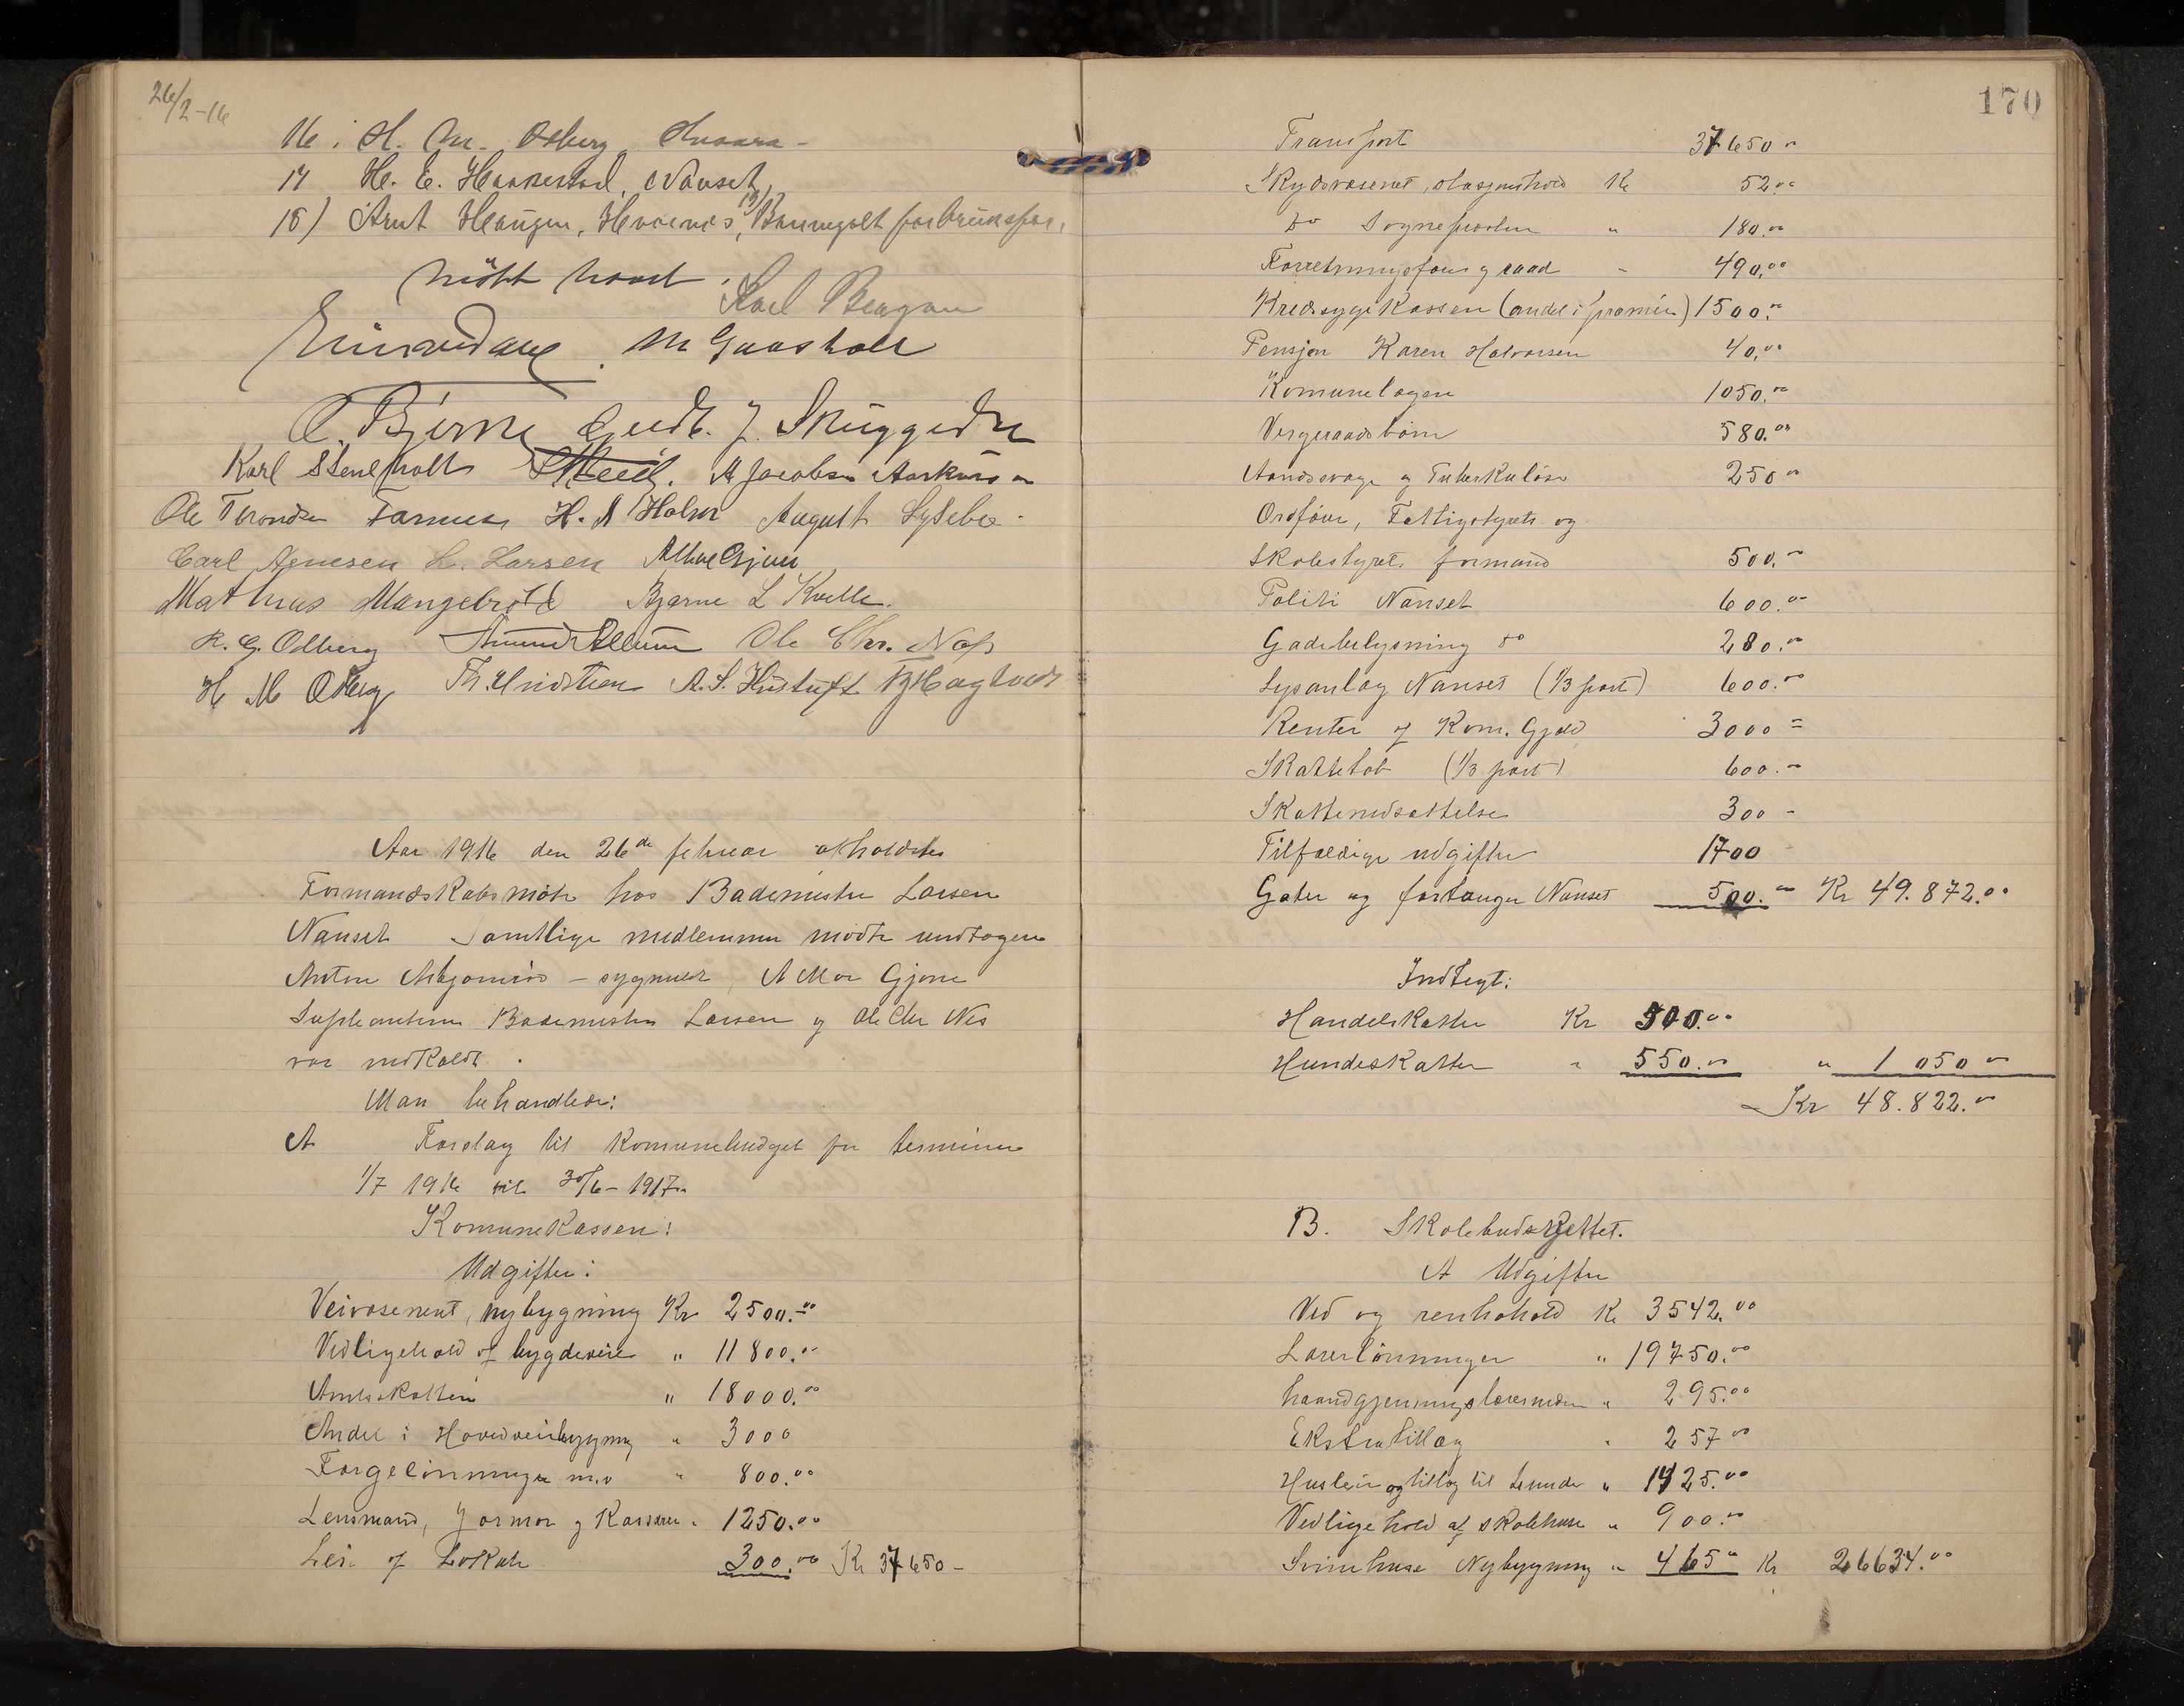 26/2-16
16. H. M. Odberg Kvaara -
17 H. E. Haakestad, Nanset,
18) Arnt Haugen, Hvaarnes,
hvist hovet.
Karl Bergan
M Gaasholt
O. Bjerke Gudb. J. Skuggedn
Karl Stensholt A Jacobsen
Ole Thronsen Farmen H. A Holm August Lysebo.
Carl Agnesen L. Larsen Alhor Gjone
Mathias Mangelrød Bjarne L Kvelle.
R. G. Odberg Amund Allum Ole Chr. Næs
H M Odberg A. S. Hustuft
Aar 1916 den 26de februar afholdtes
Formandskabsmøte hos Bademester Larsen
Nanset Samtlige medlemmer mødte undtagen
Anton – sygmeldt, Alhor Gjone
Supleanterne Bademester Larsen og Ole Chr Næs
var indkaldt.
Man behandlede:
A Forslag til Komunebudget for terminen
1/7 1916 til 30/6 – 1917.
Komunekassen:
Udgifter:
Veivæsenet, nybygning Kr 2500.00
Vedligehold af bygdeveie " 11800.00
Amtsskatten " 18000.00
Andel i Hovedveibygning " 3000
Færgelønninger m.v " 800.00
Lensmand, Jormor og Kasserer " 1250.00
Leie af Lokale 300.00 Kr 37650 –
170
Transport 37650 "
Skydsvæsenet, stasjonshold Kr 52.00
do Sogneprosten " 180.00
Forretningsfører og raad " 490.00
Kredssygekassen (andel i præmien) 1500.00
Pensjon Karen Halvorsen 40.00
Komunelægen 1050.00
Vergeraadsbørn 580.00
Aandssvage og Tuberkuløse 250.00
Ordfører, Fattigstyrets og
Skolestyrets formand 500.00
Politi Nanset 600.00
Gadebelysning do 280.00
Lysanlæg Nanset (1/3 part) 600.00
Renter af Kom. Gjæld 3000 =
Skattetab (1/3 part) 600.00
Skattenedsættelse 300 -
Tilfældige udgifter 1700
Gater og fortauger Nanset 500.00 Kr 49.872.00
Indtægt:
Handelskatter Kr 500.00
Hundeskatter " 550.00 " 1 050 00
Kr 48.822.00
B. Skolebudsjettet.
A Udgifter
Ved og renhohold Kr 3542.00
Lærerlønninger " 19750.00
haandgjerningslærerinden " 295.00
Ekstratillæg " 257 00
Husleie og tillæg til " 1425.00
Vedligehold af skolehuse " 900.00
Nybygning " 465 00 Kr 26634.00